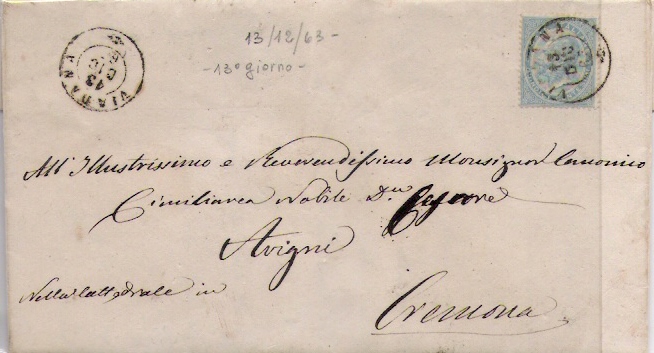 13/12/63 -
- 13° giorno -
VIADANA
13
DIC
13
DIC
All' Illustrissimo e Reverendissimo Monsignor Canonico
Cimiliarca Nobile Dn Cesare
Avigni
Nella Cattedrale in
Cremona